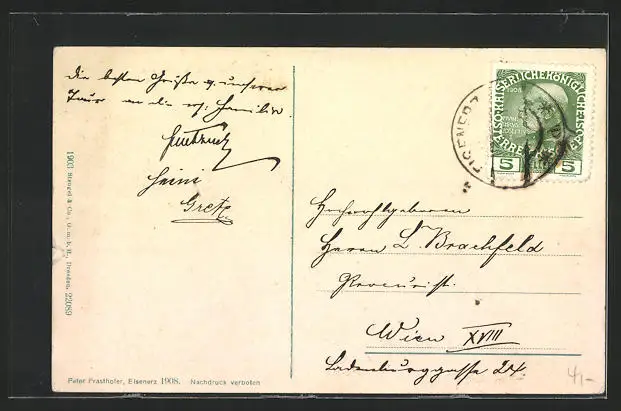 Die besten Grüße v. unserer
Tour an die w. Familie.
Heini
Gretl
1903 Stengel & Co., G. m. b. H., Dresden. 22089
Peter Prasthofer, Eisenerz 1908. Nachdruck verboten
KAISERLICHE KÖNIGLICHE
ÖSTERREICHISCHE POST
1908
5 5
EISENERZ
Hochwohlgeboren
Herrn L. Brachfeld
Procurist.
Wien XVIII
Ladenburggasse 24.
4,-